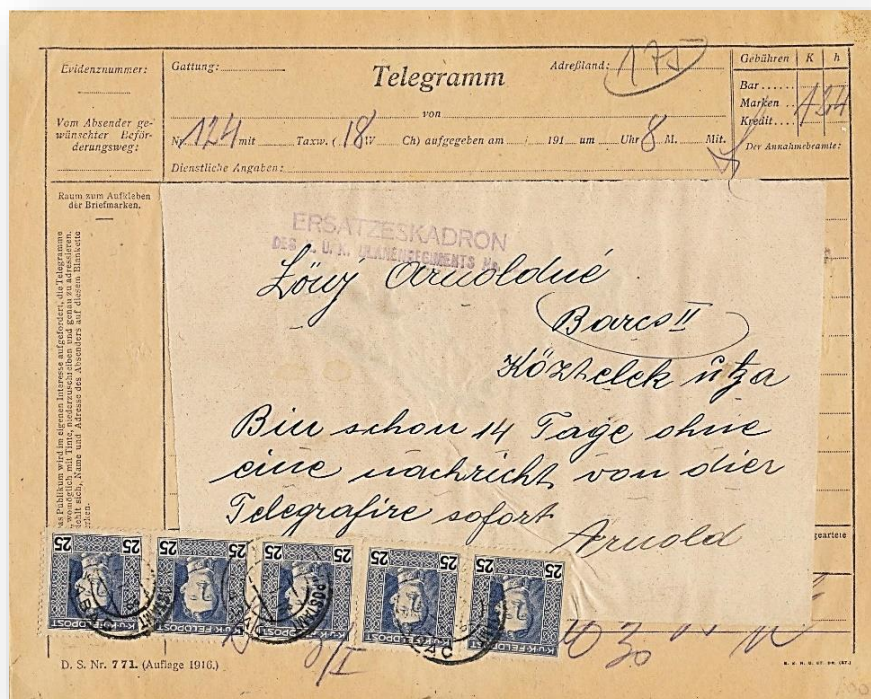 Evidenznummer:
Vom Absender ge-
wünschter Beför-
derungsweg:
Gattung:
Telegramm
Adreßland:
175
von
Nr. 124 mit Taxw. ( 18 W Ch) aufgegeben am 191 um Uhr 8 M. Mit.
Dienstliche Angaben:
Gebühren K h
Bar
Marken
Kredit
Der Annahmebeamte:
Raum zum Aufkleben
der Briefmarken.
Das Publikum wird im eigenen Interesse aufgefordert, die Telegramme
womöglich mit Tinte, niederzuschreiben und genau zu adressieren.
empfiehlt sich, Name und Adresse des Absenders auf diesem Blankette
ERSATZESKADRON
DES K. U. K. ULANENREGIMENTS
Arnoldné
Barcs II
Köztelek utza
Bin schon 14 Tage ohne
eine nachricht von dier
Telegrafire sofort
Arnold
25 25 25 25 25 25 25 25 25 25
K.u.K. FELDPOST K.u.K. FELDPOST K.u.K. FELDPOST K.u.K. FELDPOST K.u.K. FELDPOST
D. S. Nr. 771. (Auflage 1916.)